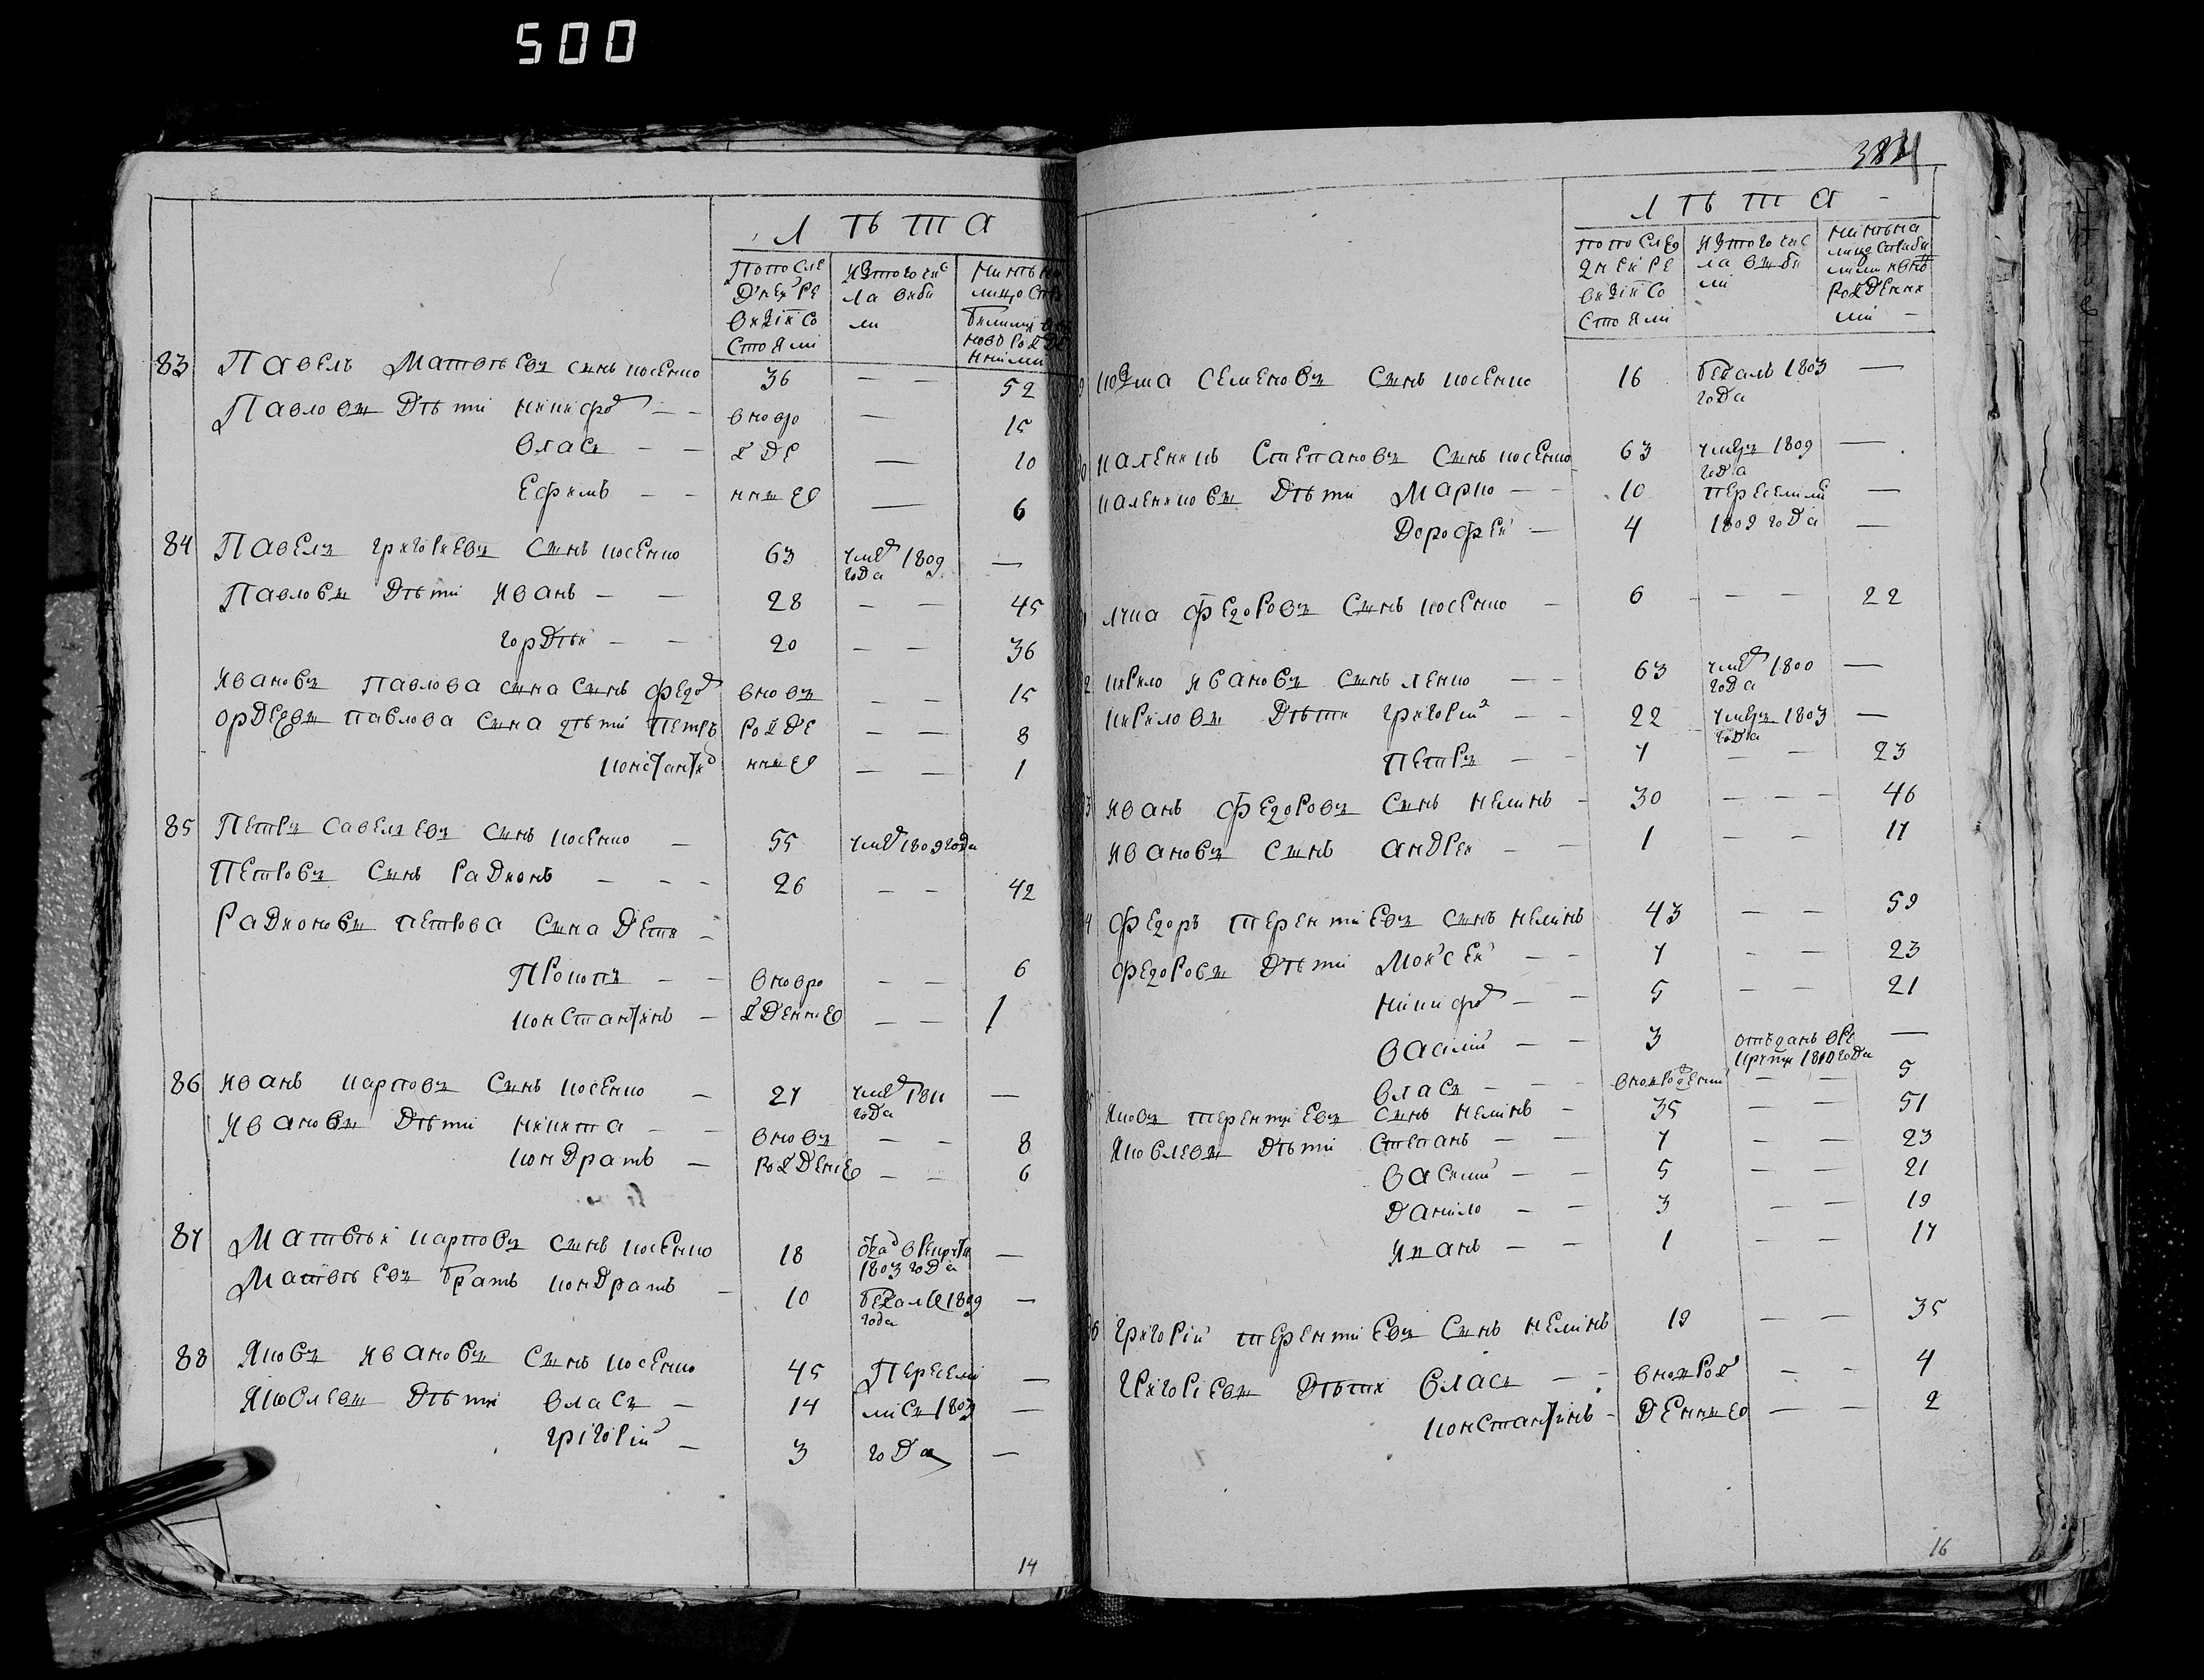 500
ЛѢТА
По после
дней ре
визіи со
стояли
Изъ того чис
ла выбы
ли
83 Павелъ Матвѣевъ сынъ косенко 36 — — 52
Павловы дѣти Никифоръ — — вновь 15
Власъ — — ро 10
Ефимъ — — — 6
84 Павелъ Григорьевъ сынъ косенко 63 умеръ 1809 —
года
Павловы дѣти Иванъ — — 28 — — 45
Гордѣй — — 20 — — 36
Ивановъ Павлова сына сынъ Федоръ вновь — — 15
Гордеевы Павлова сына дѣти Петръ рожде — — 8
Константинъ нные — — 1
85 Петръ Савельевъ сынъ косенко — 55 умеръ 1809 года
Петровъ сынъ Радионъ — — — 26 — — 42
Радионовы Петрова сына дети —
Прокопъ — — вновь ро — — 6
Константинъ — жденные — — 1
86 Иванъ Карповъ сынъ косенко — 27 умеръ 1811 —
года
Ивановы дѣти Никита — — вновь — — 8
Кондратъ — рожденые — — 6
87 Матвѣй Карповъ сынъ косенко 18 отдан в рекруты —
1803 года
Матвѣевъ братъ Кондратъ — 10 бежалъ 1809 —
года
88 Яковъ Ивановъ сынъ косенко 45 Пересели —
Яковлевы дѣти Власъ — 14 лись 1809 —
Григорій — 3 года —
14
384
ЛѢТА —
По послед
ней ре
визіи со
стояли
Изъ того чис
ла выбы
ли
Козма Семеновъ сынъ косенко 16 бежалъ 1803 —
года
Каленикъ Степановъ сынъ косенко 63 умеръ 1809 —
года
Калениковы дѣти Марко — — 10 переселили —
Дорофей — 4 1809 года —
Лука Федоровъ сынъ косенко — 6 — — — 22
Кирило Ивановъ сынъ ленко — — 63 умеръ 1800 —
года
Кириловы дѣти Григорій — — 22 умеръ 1803 —
года
Петръ — — 7 — — 23
Иванъ Федоровъ сынъ Нелинъ — 30 — — — 46
Ивановъ сынъ Андрей — — 1 — — 17
Федоръ Терентіевъ сынъ Нелинъ 43 — — 59
Федоровы дѣти Моисей — — 7 — — 23
Никифоръ — — 5 — — 21
Василій — — 3 отъданъ в ре —
круты 1810 года
Власъ — — — вновь рожденный — — 5
Яковъ Терентіевъ сынъ Нелинъ — 35 — — 51
Яковлевы дѣти Степанъ — — 7 — — 23
Василій — — 5 — — 21
Данило — — 3 — — 19
Иванъ — — 1 — — 17
Григорій Терентіевъ сынъ Нелинъ 19 — — 35
Григоріевы дѣти Власъ — — вновь рож — — 4
Константинъ — денные — — 2
16